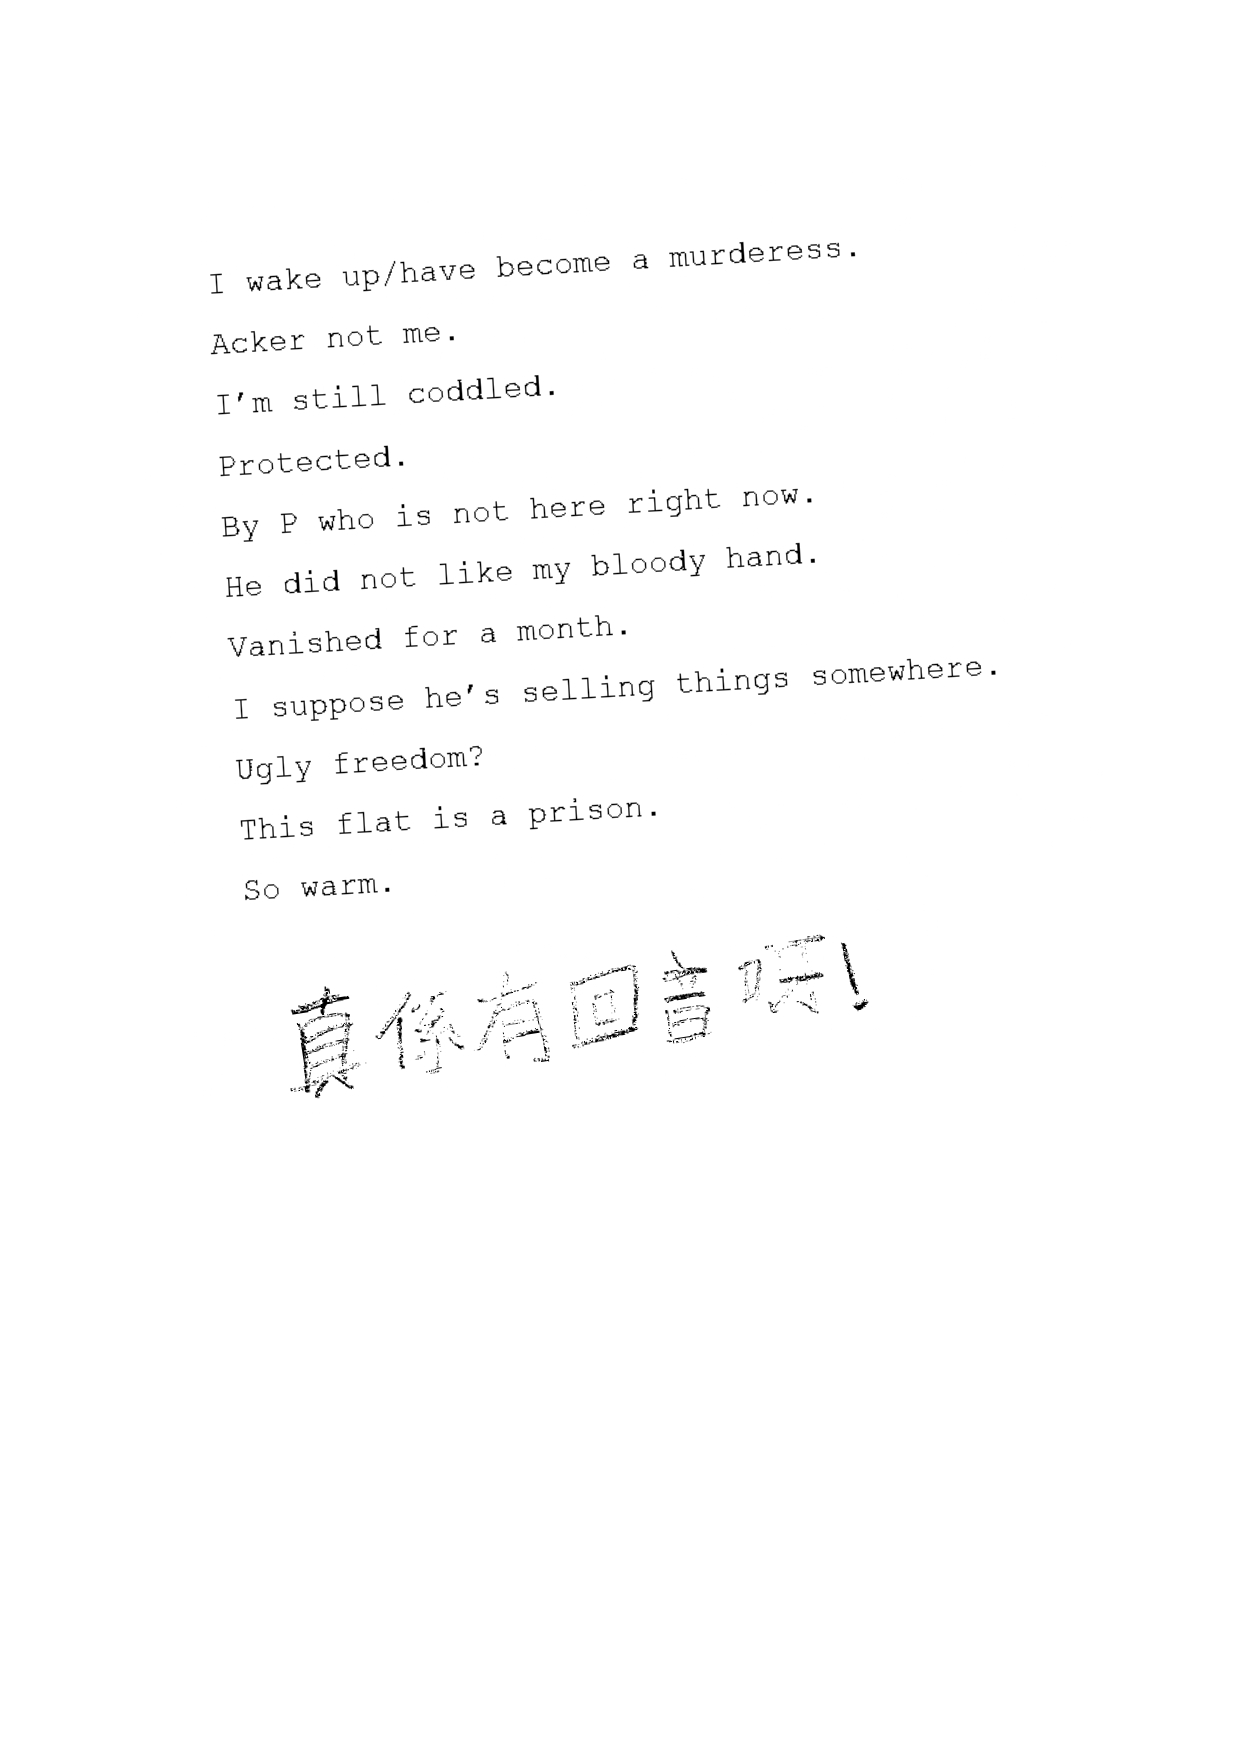 I wake up/have become a murderess.
Acker not me.
I'm still coddled.
Protected.
By P who is not here right now.
He did not like my bloody hand.
Vanished for a month.
I suppose he's selling things somewhere.
Ugly freedom?
This flat is a prison.
So warm.
真係有回音呀!